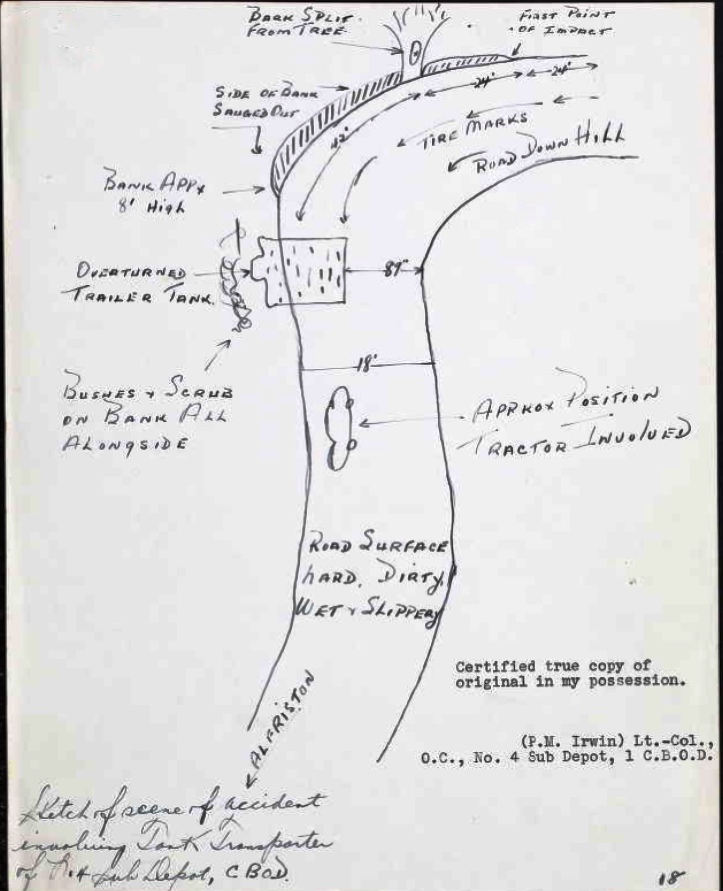 BARK SPLIT
FROM TREE
FIRST POINT
OF IMPACT
SIDE OF BANK
GAUGED OUT
24'
24'
42'
TIRE MARKS
ROAD DOWN HILL
BANK APPX
8' HIGH
OVERTURNED
TRAILER TANK.
BUSHES & SCRUB
ON BANK ALL
ALONGSIDE
18'
APPROX POSITION
TRACTOR INVOLVED
ROAD SURFACE
HARD, DIRTY,
WET & SLIPPERY
ALFRISTON
Certified true copy of
original in my possession.
(P.M. Irwin) Lt.-Col.,
O.C., No. 4 Sub Depot, 1 C.B.O.D.
Sketch of scene of accident
involving Tank Transporter
of 4 Sub Depot, CBOD.
18